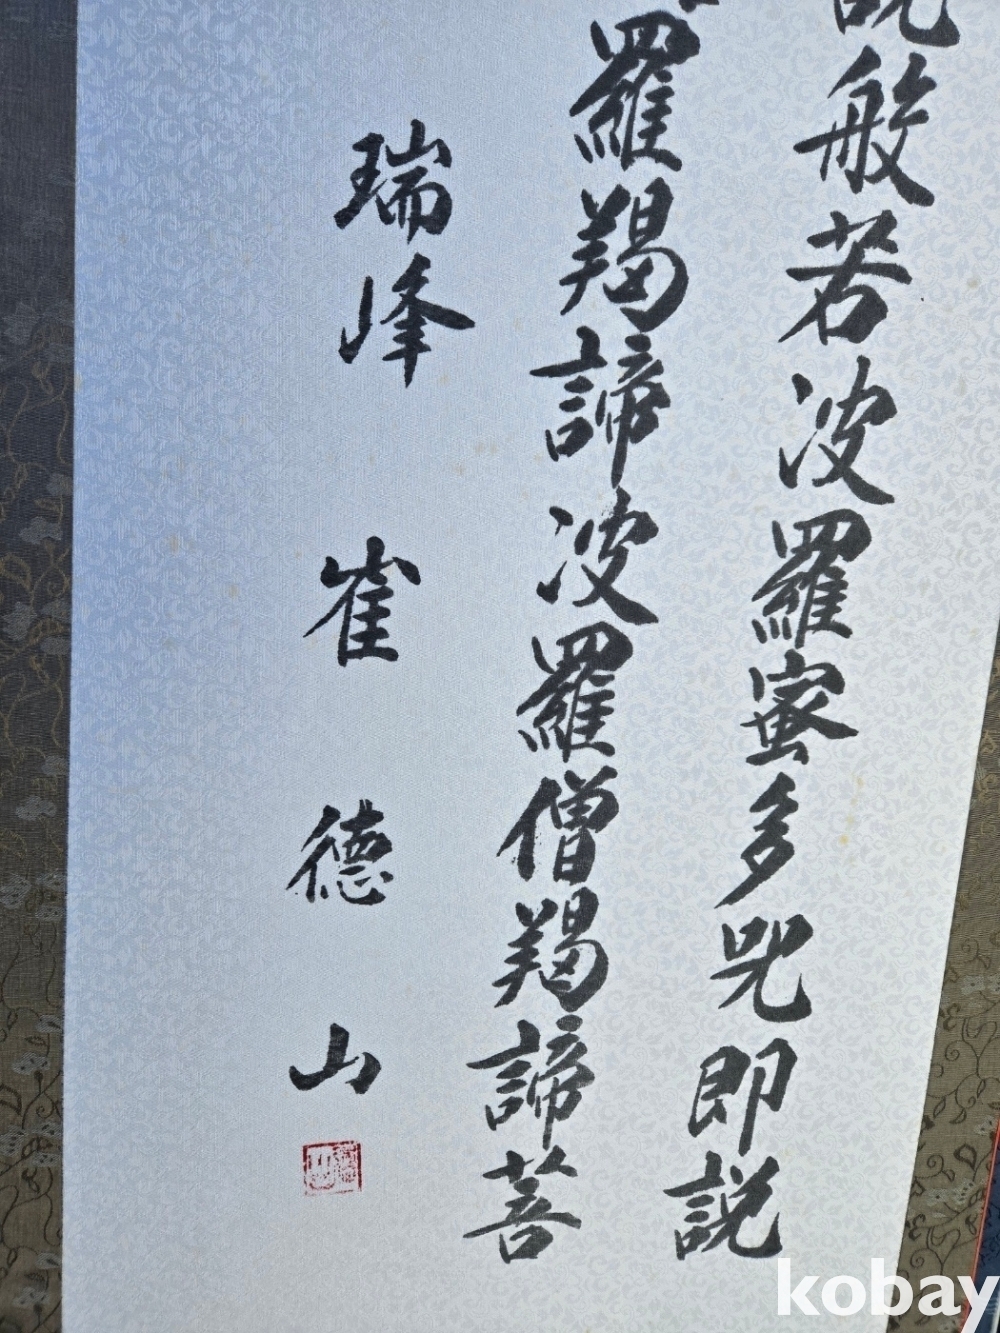 説般若波羅蜜多呪即説
羅羯諦波羅僧羯諦菩
瑞峰 崔德山
kobay